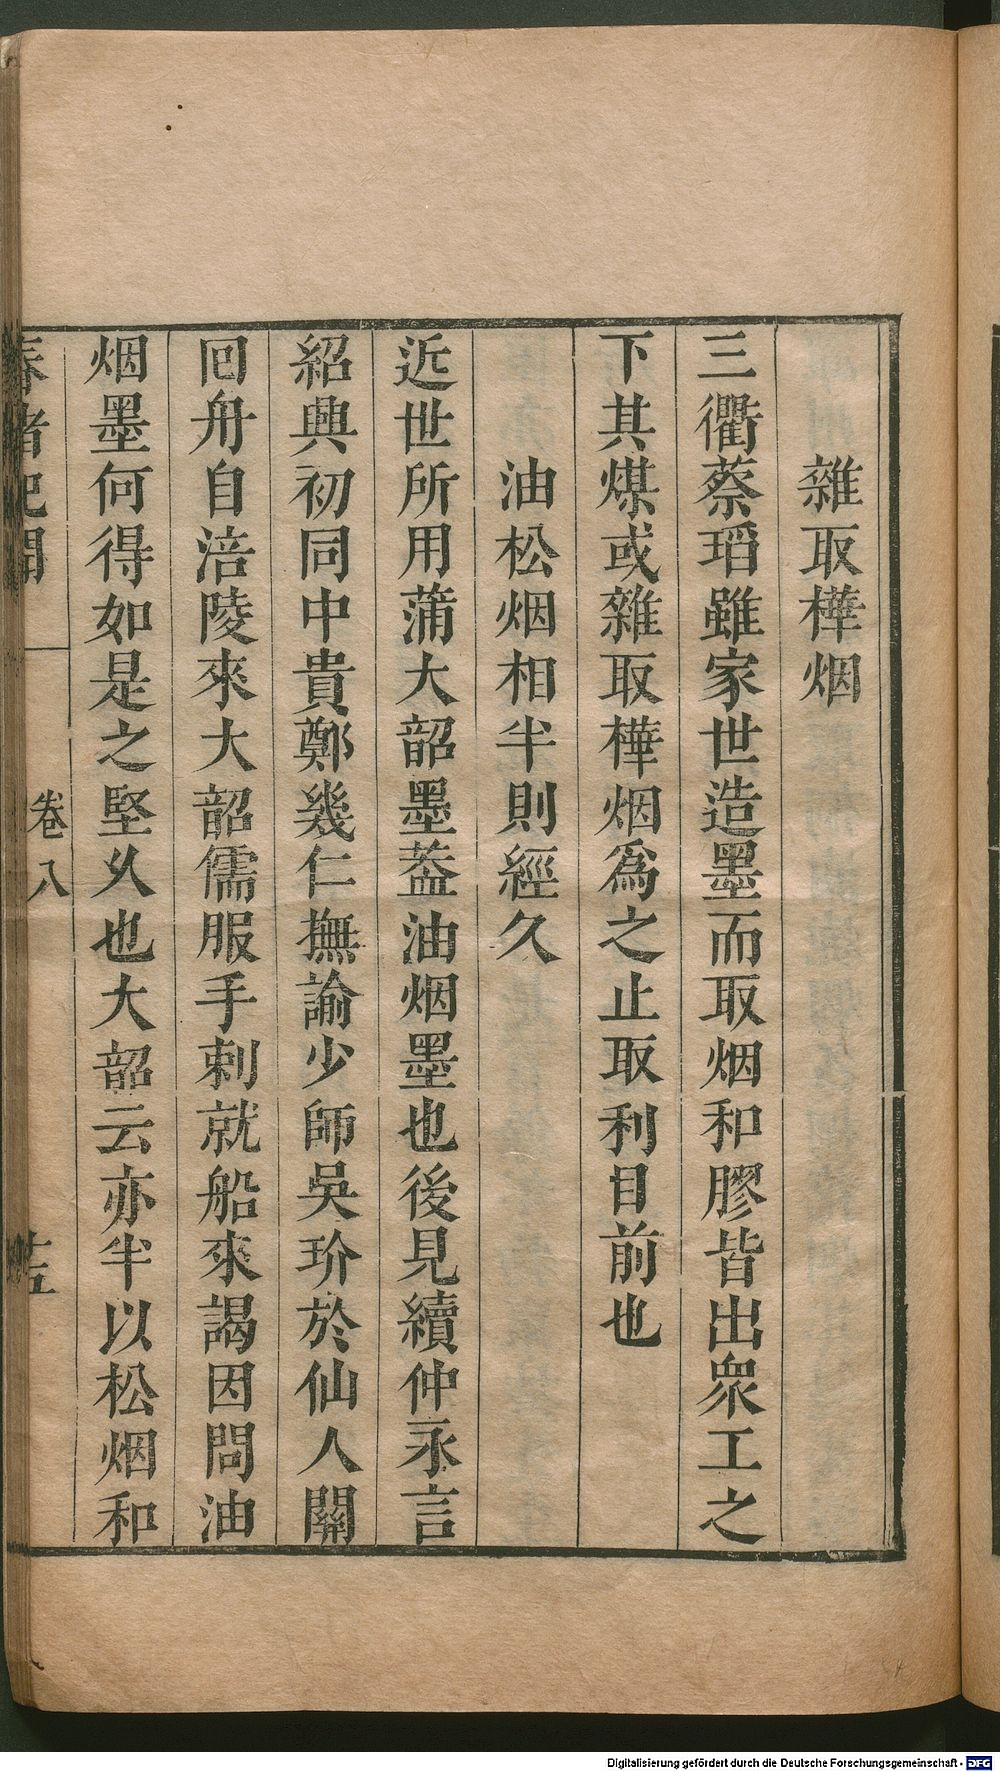 雜取樺烟
三衢蔡瑫雖家世造墨而取烟和膠皆出衆工之
下其煤或雜取樺烟爲之止取利目前也
油松烟相半則經久
近世所用蒲大韶墨葢油烟墨也後見續仲永言
紹興初同中貴鄭幾仁撫諭少師吳玠於仙人關
回舟自涪陵來大韶儒服手刺就船來謁因問油
烟墨何得如是之堅乆也大韶云亦半以松烟和
春渚紀聞
卷八
十五
Digitalisierung gefördert durch die Deutsche Forschungsgemeinschaft - DFG